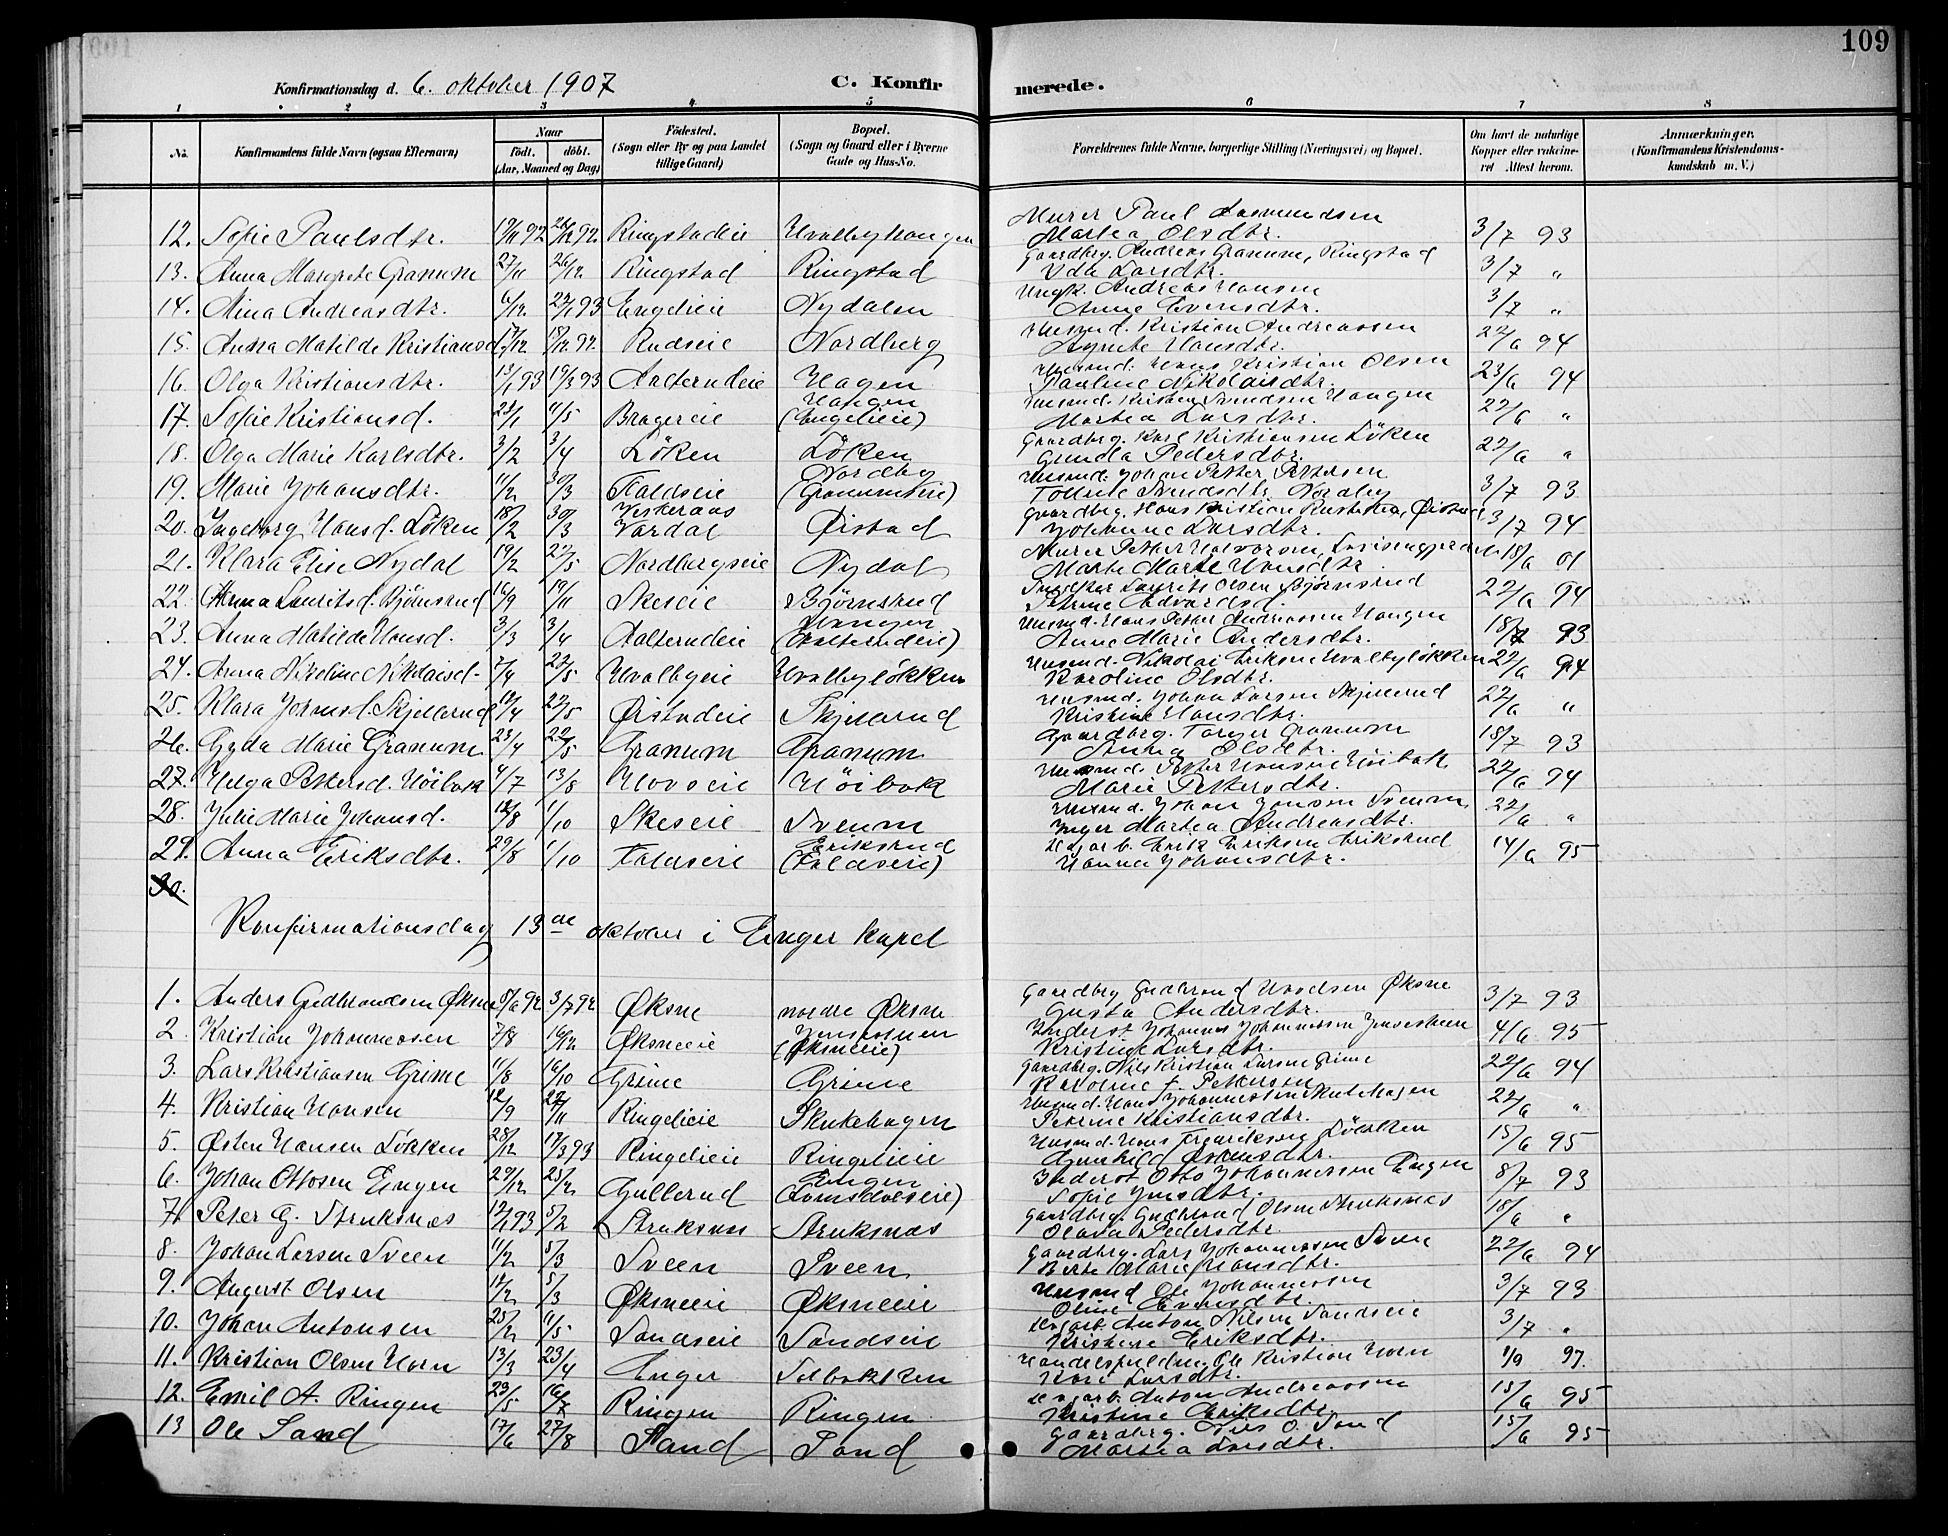 109
Konfirmationsdag d. 6. oktober 1907 C. Konfirmerede.
1 2 3 4 5 6 7 8
No. Konfirmandens fulde Navn (ogsaa Efternavn) Naar født. døbt. (Aar, Maaned og Dag) Fødested. (Sogn eller By og paa Landet tillige Gaard) Bopæl. (Sogn og Gaard eller i Byerne Gade og Hus-No. Forældrenes fulde Navne, borgerlige Stilling (Næringsvei) og Bopæl. Om havt de naturlige Kopper eller vakcineret Attest herom. Anmærkninger. (Konfirmandens Kristendomskundskab m. V.)
12. Sofie Paulsdtr. 19/11 92 26/12 92 Ringstadeie Hvalbyhaugen Murer Paul Rasmundsen Martea Olsdtr. 3/7 93
13. Anna Margrete Granum 27/11 26/12 Ringstad Ringstad Gaardbrg. Andreas Granum, Ringstad Ida Larsdtr. 3/7 "
14. Mina Andreasdtr. 6/12 22/1 93 Engelieie Nydalen Ungk. Andreas Hansen Anne Evensdtr. 3/7 "
15. Anna Matilde Kristiansd. 17/12 18/12 92 Rudseie Nordberg Husmd. Kristian Andreassen Agnete Hansdtr. 22/6 94
16. Olga Kristiansdtr. 13/1 93 19/3 93 Aalterudeie Hagen Husmd. Hans Kristian Olsen Pauline Nikolaisdtr. 23/6 94
17. Sofie Kristiansd. 23/1 4/5 Bragereie Haugen (Engelieie) Husmd. Kristian Svendsen Haugen Martea Larsdtr. 22/6 "
18. Olga Marie Karlsdtr. 3/2 3/4 Løken Løken Gaardbrg. Karl Kristiansen Løken Gunda Pedersdtr. 22/6 "
19. Marie Johansdtr. 11/2 30/3 Faldseie Nordby (Granumseie) Husmd. Johan Petter Pettersen Svendsdtr. Nordby 3/7 93
20. Ingeborg Hansd. Løken 18/2 30/3 Vardal Øistad Gaardbrg. Hans Kristian Øistad Johanne Larsdtr. 3/7 94
21. Klara Elise Nydal 19/2 22/5 Nordbergseie Nydal Murer Petter Halvorsen Marte Marie Hansdtr. 18/6 01
22. Anna Lauritsd. Bjørnsrud 16/9 19/11 Skeseie Bjørnsrud Laurits Olsen Bjørnsrud Petrine Edvardsd. 22/6 94
23. Anna Matilde Hansd. 3/3 3/4 Aalterudeie Haugen (Aalterudeie) Husmd. Hans Petter Andreassen Haugen Anne Marie Andersdtr. 18/7 93
24. Anna Nikoline Nikolaisd. 7/4 22/5 Hvalbyeie Hvalbyløkken Husmd. Nikolai Eriksen Hvalbyløkken Karoline Olsdtr. 22/6 94
25. Klara Johansd. Skjellerud 12/4 22/5 Øistadeie Skjellerud Husmd. Johan Larsen Skjellerud Kristine Hansdtr. 22/6 "
26. Gyda Marie Granum 23/4 22/5 Granum Granum Gaardbrg. Torger Granum Anna Olsdtr. 18/7 93
27. Helga Pettersd. Høibak 4/7 13/8 Hovseie Høibak Husmd. Petter Hansen Høibak Marie Pettersdtr. 22/6 94
28. Julie Marie Johansd. 12/8 1/10 Skeseie Sveum Husmd. Johan Jonsen Sveum Inger Martea Andreasdtr. 22/6 "
29. Anna Eriksdtr. 29/8 1/10 Faldseie Eriksrud (Faldseie) Erik Eriksen Eriksrud Hanna Johansdtr. 14/6 95
30.
Konfirmationsdag 13de oktober i Enger kapel
1. Anders Gudbrandsen Øksne 5/6 92 3/7 92 Øksne nordre Øksne Gaardbrg Gudbrand Øksne Gusta Andersdtr. 3/7 93
2. Kristian Johannessen 7/8 16/12 Øksneeie (Øksneeie) Inderst Johannes Johannessen Kristine Larsdtr. 4/6 95
3. Lars Kristiansen Grime 11/8 16/10 Grime Grime Gaardbrg. Nils Kristian Larsen Grime Karoline f. Pettersen 22/6 94
4. Kristian Hansen 12/9 27/11 Ringelieie Skutehagen Husmd. Hans Johannessen Skutehagen Petrine Kristiansdtr. 22/6 "
5. Østen Hansen Løkken 28/12 17/3 93 Ringelieie Ringelieie Husmd. Hans Fredriksen Løkken Gunhild Østensdtr. 15/6 95
6. Johan Ottosen Engen 29/12 25/2 Gullerud Engen Inderst Otto Johannessen Engen Sofie Jensdtr. 8/7 93
7. Peter G. Struksnæs 12/1 93 5/2 Struksnæs Struksnæs Gaardbrg. Gudbrand Olsen Struksnæs Olava Pedersdtr. 18/6 "
8. Johan Larsen Sveen 11/2 5/3 Sveen Sveen Gaardbrg. Lars Johannessen Sveen Berte Marie Hansdtr. 22/6 94
9. August Olsen 14/2 5/3 Øksneeie Øksneeie Husmd Ole Johannessen Oline Evensdtr. 3/7 93
10. Johan Antonsen 25/2 11/5 Sandseie Sandseie Anton Nilsen Sandseie Kristine Eriksdtr. 3/7 "
11. Kristian Olsen Horn 13/3 23/4 Enger Selbakken Ole Kristian Horn Kari Larsdtr. 1/9 97.
12. Emil A. Ringen 29/5 16/7 Ringen Ringen Anton Andreassen Kristine Eriksdtr. 15/6 95
13 Ole Sand 17/6 27/8 Sand Sand Gaardbrg. Nils O. Sand Martea Larsdtr. 15/6 95